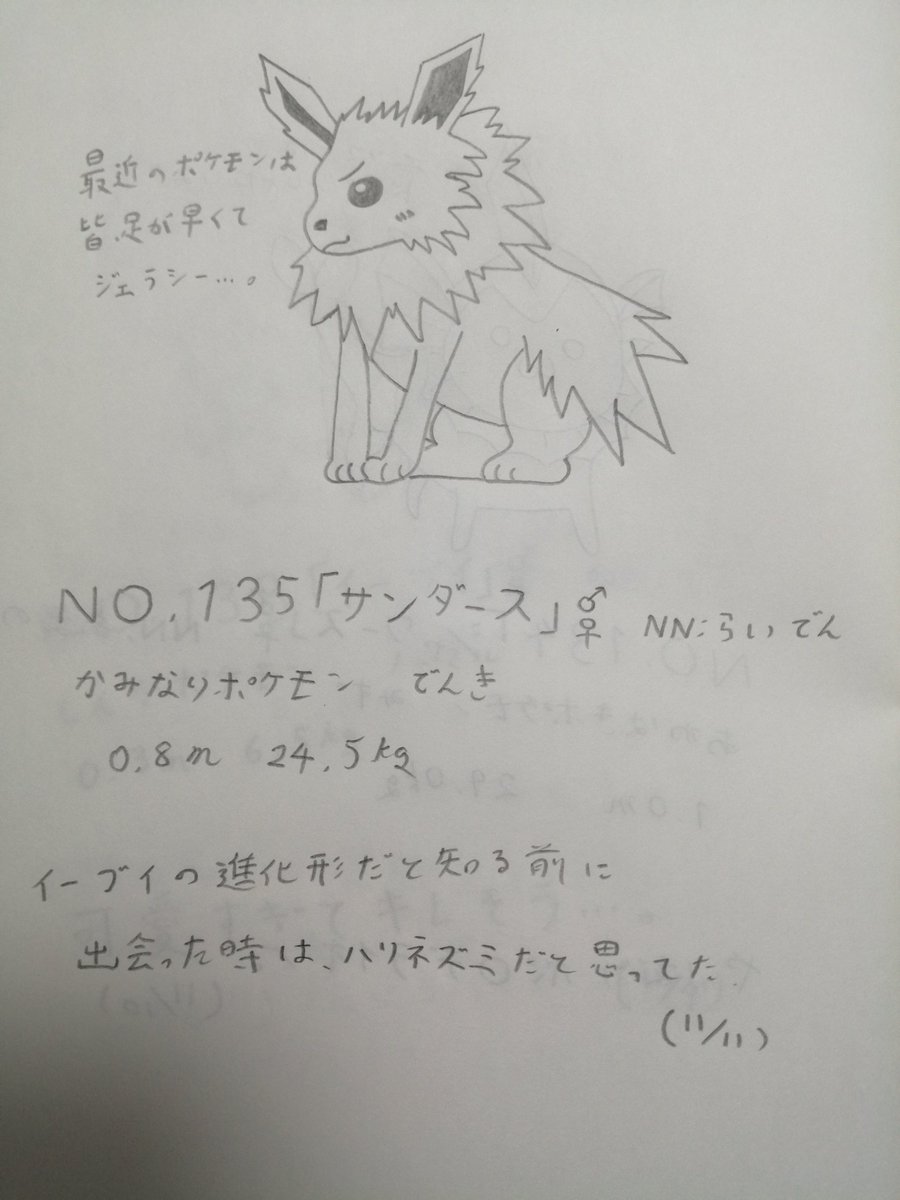 最近のポケモンは
皆足が早くて
ジェラシー…。
NO.135「サンダース」♂♀ NN:らいでん
かみなりポケモン でんき
0.8m 24.5kg
イーブイの進化形だと知る前に
出会った時は、ハリネズミだと思ってた
(11/11)